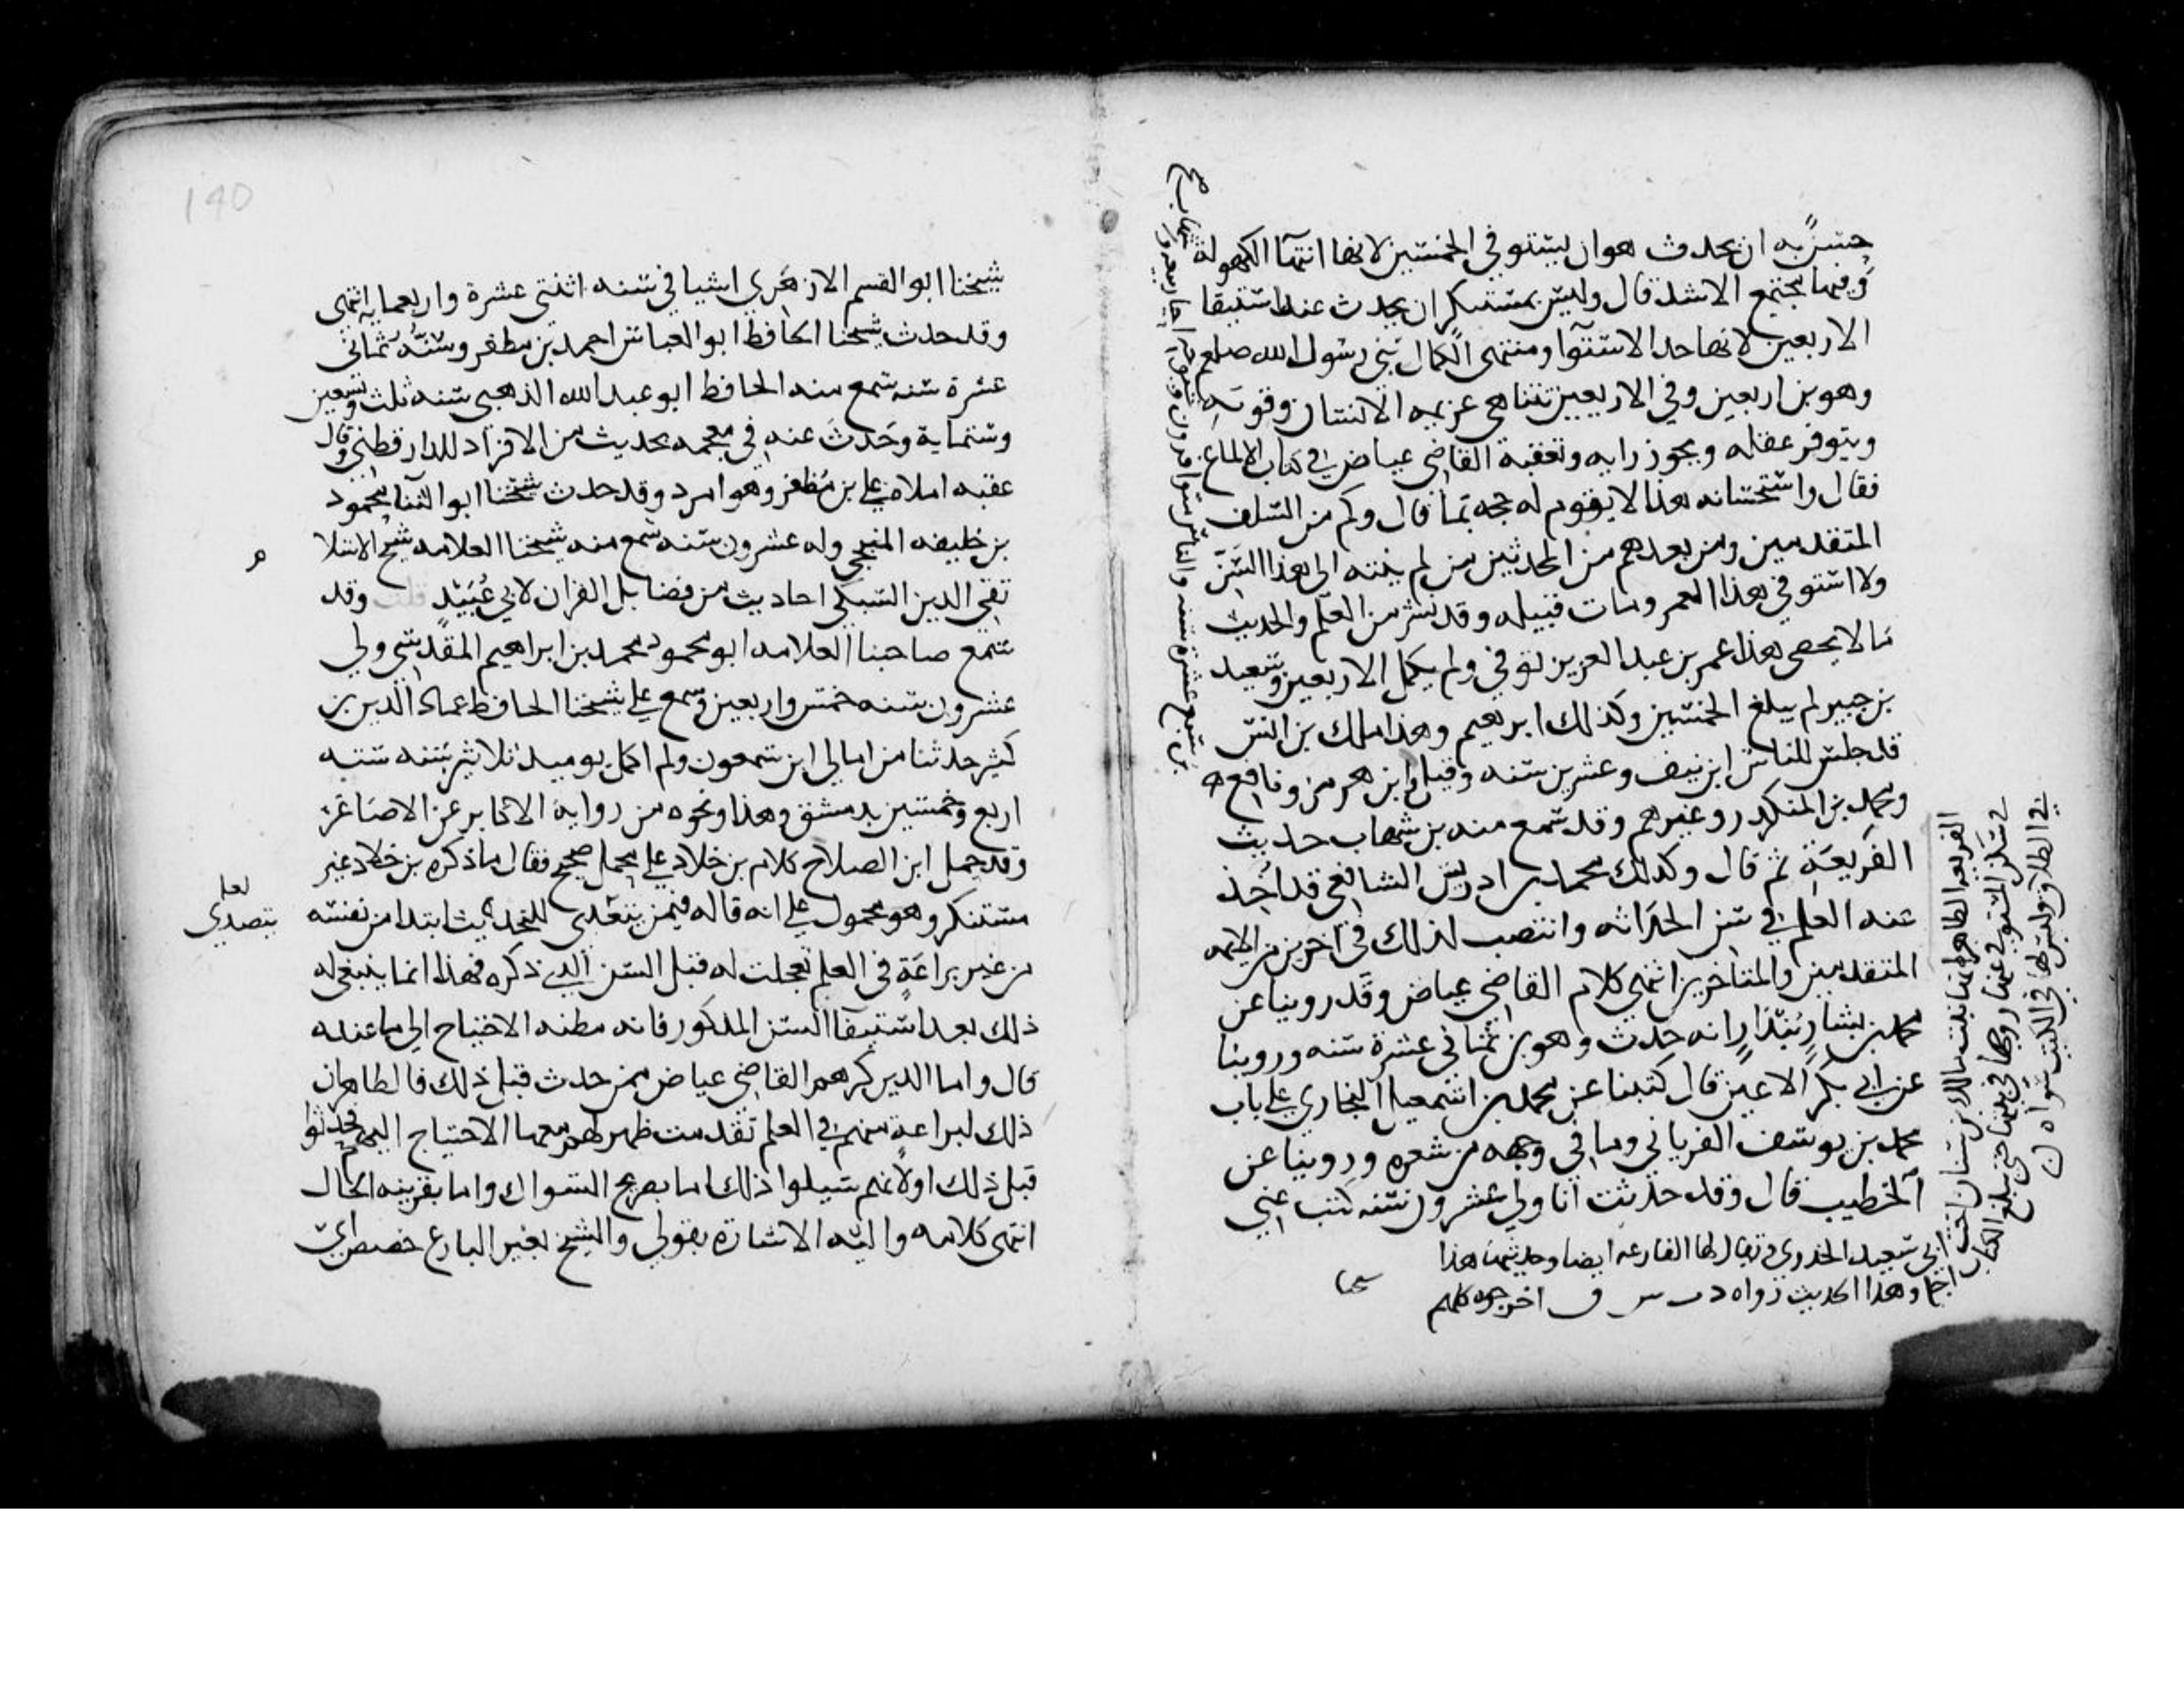 حسن به ان يحدث هو ان يستوفي الخمسين لانها انتها الكهولة
وفيها مجتمع الاشد قال وليس بمستنكر ان يحدث عند استيفا
الاربعين لانها حد الاستوا ومنتهى الكمال نبي رسول الله صلعم
وهو بن اربعين وفي الاربعين تتناهى عزيمه الانسان وقوته
ويتوفر عقله ويجود رايه وتعقبه القاضي عياض في كتاب الالماع
فقال واستحسانه هذا لا يقوم له حجه بما قال وكم من السلف
المتقدمين ومن بعدهم من المحدثين من لم ينته الى هذا السن
ولا استوفي هذا العمر ومات قبيله وقد نشر من العلم والحديث
ما لا يحصى هذا عمر بن عبد العزيز توفي ولم يكمل الاربعين وسعيد
بن جبير لم يبلغ الخمسين وكذلك ابرهيم وهذا ملك بن انس
قد جلس للناس ابن نيف وعشرين سنه وقيل وابن هرمز ونافع
ومحمد بن المنكدر وغيرهم وقد سمع منه بن شهاب حديث
الفريعة ثم قال وكذلك محمد بن ادريس الشافعي قد اخذ
عنه العلم في سن الحداثه وانتصب لذلك في اخرين من الايمه
المتقدمين والمتاخرين انتهى كلام القاضي عياض وقد روينا عن
محمد بن بشار بندار انه حدث وهو بن ثماني عشرة سنه وروينا
عن ابي بكر الاعين قال كتبنا عن محمد بن اسمعيل البخاري على باب
محمد بن يوسف الفريابي وما في وجهه من شعره وروينا عن
الخطيب قال وقد حدثت انا ولي عشرون سنه كتب عني
بن سبع عشرة سنه والناس متوافرون
الفريعه الطاهر انها بنت مالك بن سنان اخت
ابي سعيد الخدري ويقال لها الفارعه ايضا وحديثها هذا
في سكنى المتوفى عنها زوجها في بيتها حتى يبلغ الكتاب
اجله وهذا الحديث رواه د ت س ق اخرجوه كلهم
في الطلاق وليس لها في الكتب سواه
140
شيخنا ابو القسم الازهري اشيا في سنه اثنتي عشرة واربعمايه انتهى
وقد حدث شيخنا الحافظ ابو العباس احمد بن مظفر وسنه ثماني
عشرة سنه سمع منه الحافظ ابو عبد الله الذهبي سنه ثلث وتسعين
وستماية وحدث عنه في معجمه بحديث من الافراد للدارقطني وقال
عقبه املاه علي بن مظفر وهو امرد وقد حدث شيخنا ابو الثنا محمود
بن خليفه المنبجي وله عشرون سنه سمع منه شيخنا العلامه شيخ الاسلا
م
تقي الدين السبكي احاديث من فضايل القران لابي عبيد قلت وقد
سمع صاحبنا العلامه ابو محمود محمد بن ابراهيم المقدسي ولي
عشرون سنه خمس واربعين وسمع على شيخنا الحافظ عماد الدين بن
كثير حدثنا من امالي ابن سمعون ولم اكمل يوميد ثلاثين سنه سنه
اربع وخمسين بدمشق وهذا ونحوه من رواية الاكابر عن الاصاغر
وقد حمل ابن الصلاح كلام بن خلاد على محمل صحيح فقال ما ذكره بن خلاد غير
مستنكر وهو محمول على انه قاله فيمن يتعدى للتحديث ابتدا من نفسه
لعله
يتصدى
من غير براعة في العلم تعجلت له قبل السن الذي ذكره فهذا انما ينبغي له
ذلك بعد استيفا السن المذكور فانه مظنه الاحتياج الى ما عنده
قال واما الذين ذكرهم القاضي عياض ممن حدث قبل ذلك فالظاهر ان
ذلك لبراعة منهم في العلم تقدمت ظهر لهم معها الاحتياج اليهم فحدثوا
قبل ذلك او لانهم سيلوا ذلك اما بصريح السوال واما بقرينه الحال
انتهى كلامه واليه الاشارة بقولي والشيخ بغير البارع خصص اي